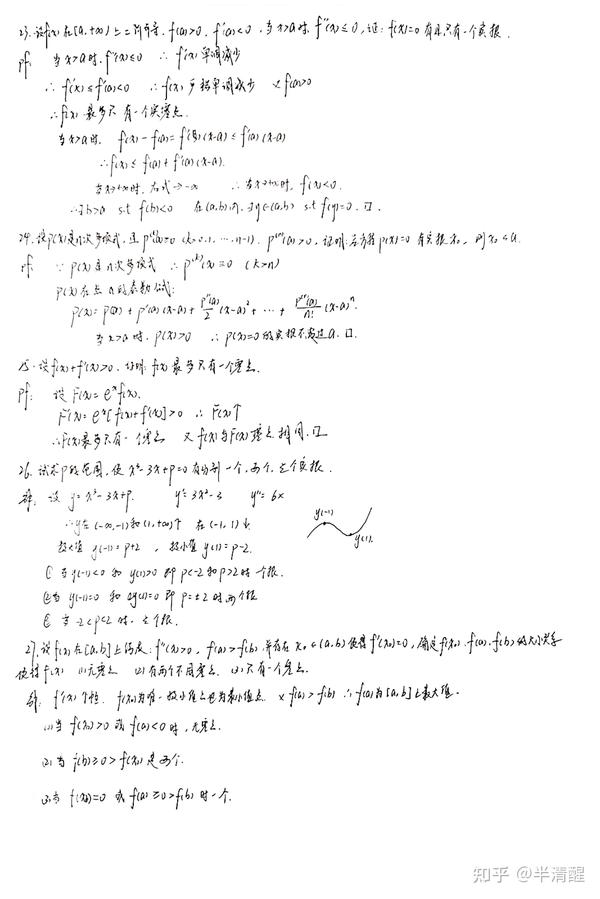 23. 设f(x)在[a,+∞)上二阶可导, f(a)>0, f'(a)<0, 当x>a时, f''(x)≤0, 证: f(x)=0有且只有一个实根.
pf: 当x>a时, f''(x)≤0 ∴ f'(x)单调减少
∴ f'(x)≤f'(a)<0 ∴ f(x)严格单调减少 又f(a)>0
∴f(x)最多只有一个实零点.
当x>a时, f(x)-f(a)=f'(ξ)(x-a)≤f'(a)(x-a)
∴f(x)≤f(a)+f'(a)(x-a).
当x→+∞时, 右式→-∞ ∴当x→+∞时, f(x)<0.
∴∃b>a s.t f(b)<0 在(a,b)内, ∃η∈(a,b) s.t f(η)=0. 口.
24. 设p(x)是n次多项式, 且p^(k)(a)≥0 (k=0,1,…,n-1). p^(n)(a)>0, 证明: 若方程p(x)=0有实根x₀, 则x₀≤a.
pf: ∵ p(x)是n次多项式 ∴p^(k)(x)=0 (k>n)
p(x)在点a的泰勒公式:
p(x)=p(a)+p'(a)(x-a)+p''(a)/2(x-a)²+…+p^(n)(a)/n!(x-a)ⁿ.
当x>a时, p(x)>0 ∴p(x)=0的实根不超过a. 口.
25. 设f(x)+f'(x)>0. 证明: f(x)最多只有一个零点.
pf: 设F(x)=eˣf(x).
F'(x)=eˣ[f(x)+f'(x)]>0 ∴F(x)↑
∴F(x)最多只有一个零点 又f(x)与F(x)零点相同. 口
26. 试求p的范围, 使x³-3x+p=0有分别一个, 两个, 三个实根.
解: 设y=x³-3x+p. y'=3x²-3 y''=6x
∴y在(-∞,-1)和(1,+∞)↑ 在(-1,1)↓
极大值y(-1)=p+2, 极小值y(1)=p-2.
y(-1)
y(1).
① 当y(-1)<0和y(1)>0即p<-2和p>2时一个根.
②当y(-1)=0和y(1)=0即p=±2时两个根
③ 当-2<p<2时. 三个根.
27. 设f(x)在[a,b]上满足: f''(x)>0, f(a)>f(b), 并存在x₀∈(a,b)使得f'(x₀)=0, 确定f(x₀), f(a), f(b)的大小关系
使得f(x) (1)无零点 (2)有两个不同零点. (3)只有一个零点.
解: f(x₀)为唯一极小值点也为最小值点. 又f(a)>f(b) ∴f(a)为[a,b]上最大值.
(1)当f(x₀)>0或f(a)<0时, 无零点.
(2)当f(b)≥0>f(x₀)是两个.
(3)当f(x₀)=0或f(a)≥0>f(b)时一个.
知乎 @半清醒